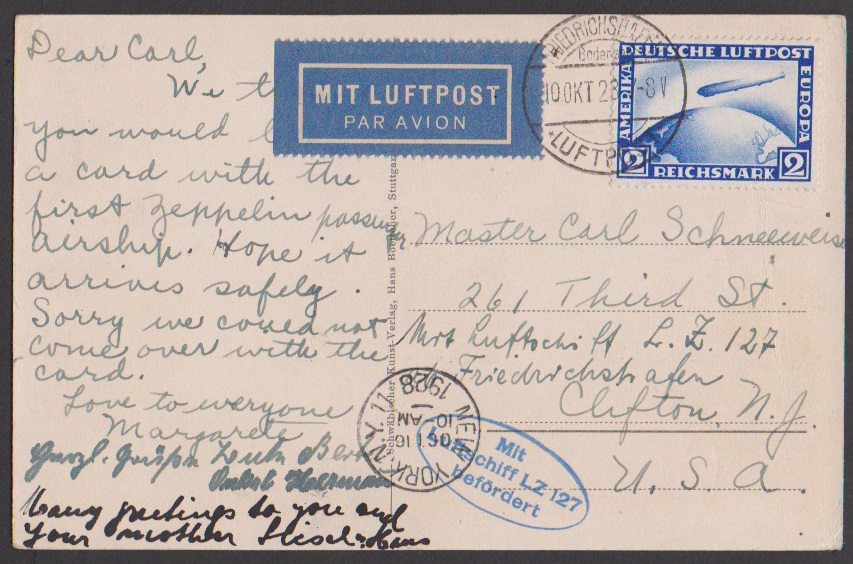 Dear Carl,
We t
you would l
a card with the
first Zeppelin passenger
airship. Hope it
arrives safely.
Sorry we could not
come over with the
card.
Love to everyone
Margarete
Herzl. Tante
Onkel Herman
Many greetings to you and
your mother Hans
MIT LUFTPOST
PAR AVION
FRIEDRICHSHAFEN
Bodens
10 OKT 28 -8 V
LUFTP
DEUTSCHE LUFTPOST
AMERIKA
EUROPA
2 REICHSMARK 2
Schwäbischer Kunst-Verlag, Hans Boettcher, Stuttgart
Master Carl Schneeweiss
261 Third St.
Mit Luftschiff L.Z. 127
Friedrichshafen
Clifton, N.J.
U.S.A.
NEW YORK, N.Y. 11
OCT 16
10 AM
1928
Mit
Luftschiff LZ 127
befördert